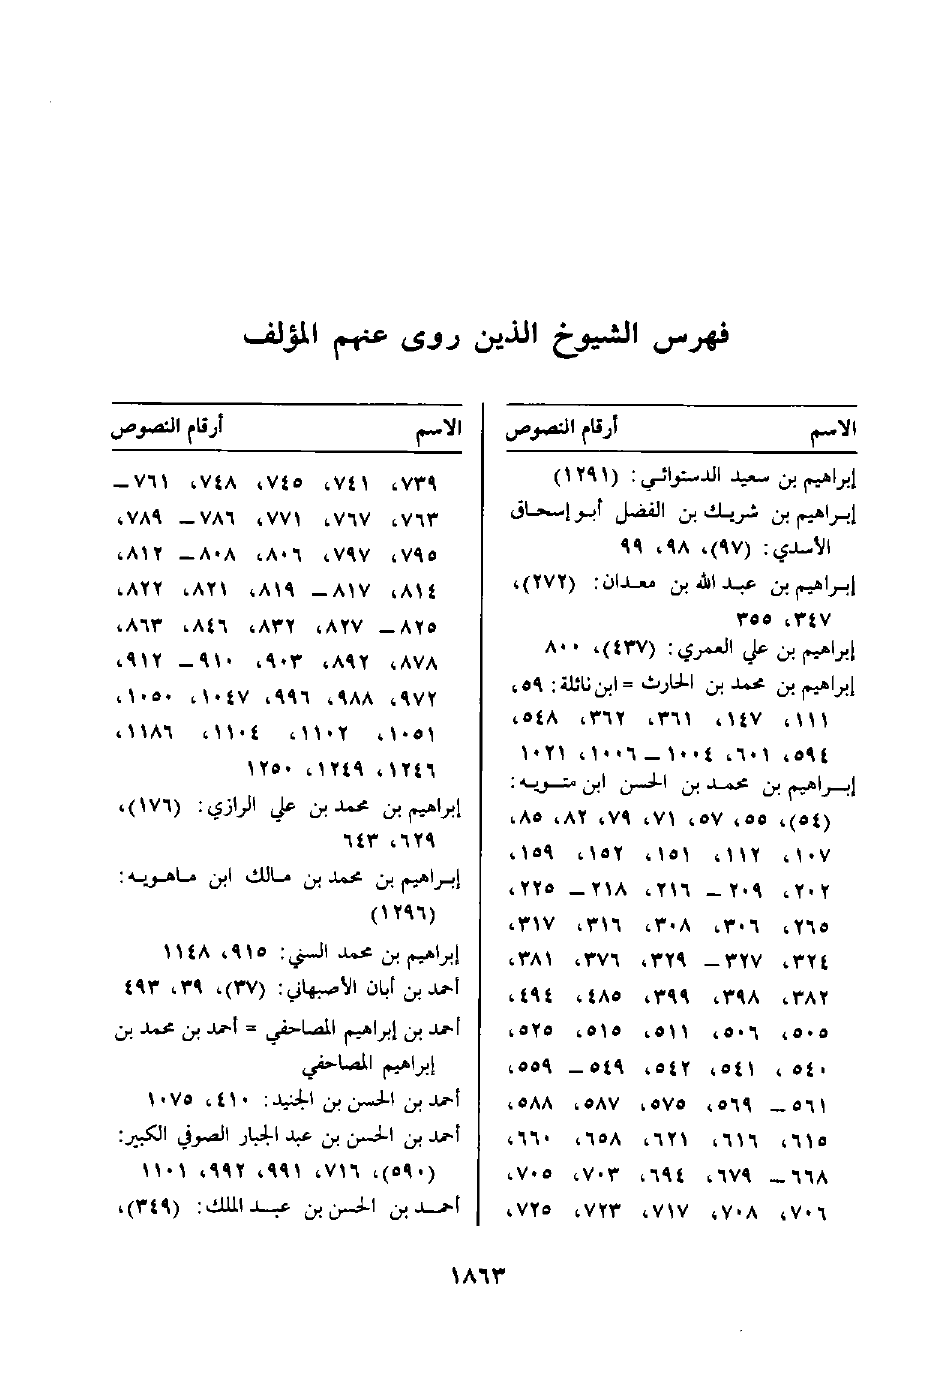 فهرس الشيوخ الذين روى عنهم المؤلف
الاسم أرقام النصوص
إبراهيم بن سعيد الدستوائي: (١٢٩١)
إبراهيم بن شريك بن الفضل أبو إسحاق
الأسدي: (٩٧)، ٩٨، ٩٩
إبراهيم بن عبد الله بن معدان: (٢٧٢)،
٣٤٧، ٣٥٥
إبراهيم بن علي العمري: (٤٣٧)، ٨٠٠
إبراهيم بن محمد بن الحارث = ابن نائلة: ٥٩،
١١١، ١٤٧، ٣٦١، ٣٦٢، ٥٤٨،
٥٩٤، ٦٠١، ١٠٠٤ – ١٠٠٦، ١٠٢١
إبراهيم بن محمد بن الحسن ابن متويه:
(٥٤)، ٥٥، ٥٧، ٧١، ٧٩، ٨٢، ٨٥،
١٠٧، ١١٢، ١٥١، ١٥٢، ١٥٩،
٢٠٢، ٢٠٩ – ٢١٦، ٢١٨ – ٢٢٥،
٢٦٥، ٣٠٦، ٣٠٨، ٣١٦، ٣١٧،
٣٢٤، ٣٢٧ – ٣٢٩، ٣٧٦، ٣٨١،
٣٨٢، ٣٩٨، ٣٩٩، ٤٨٥، ٤٩٤،
٥٠٥، ٥٠٦، ٥١١، ٥١٥، ٥٢٥،
٥٤٠، ٥٤١، ٥٤٢، ٥٤٩ – ٥٥٩،
٥٦١ – ٥٦٩، ٥٧٥، ٥٨٧، ٥٨٨،
٦١٥، ٦١٦، ٦٢١، ٦٥٨، ٦٦٠،
٦٦٨ – ٦٧٩، ٦٩٤، ٧٠٣، ٧٠٥،
٧٠٦، ٧٠٨، ٧١٧، ٧٢٣، ٧٢٥،
الاسم أرقام النصوص
٧٣٩، ٧٤١، ٧٤٥، ٧٤٨، ٧٦١ –
٧٦٣، ٧٦٧، ٧٧١، ٧٨٦ – ٧٨٩،
٧٩٥، ٧٩٧، ٨٠٦، ٨٠٨ – ٨١٢،
٨١٤، ٨١٧ – ٨١٩، ٨٢١، ٨٢٢،
٨٢٥ – ٨٢٧، ٨٣٢، ٨٤٦، ٨٦٣،
٨٧٨، ٨٩٢، ٩٠٣، ٩١٠ – ٩١٢،
٩٧٢، ٩٨٨، ٩٩٦، ١٠٤٧، ١٠٥٠،
١٠٥١، ١١٠٢، ١١٠٤، ١١٨٦،
١٢٤٦، ١٢٤٩، ١٢٥٠
إبراهيم بن محمد بن علي الرازي: (١٧٦)،
٦٢٩، ٦٤٣
إبراهيم بن محمد بن مالك ابن ماهويه:
(١٢٩٦)
إبراهيم بن محمد السني: ٩١٥، ١١٤٨
أحمد بن أبان الأصبهاني: (٣٧)، ٣٩، ٤٩٣
أحمد بن إبراهيم المصاحفي = أحمد بن محمد بن
إبراهيم المصاحفي
أحمد بن الحسن بن الجنيد: ٤١٠، ١٠٧٥
أحمد بن الحسن بن عبد الجبار الصوفي الكبير:
(٥٩٠)، ٧١٦، ٩٩١، ٩٩٢، ١١٠١
أحمد بن الحسن بن عبد الملك: (٣٤٩)،
١٨٦٣